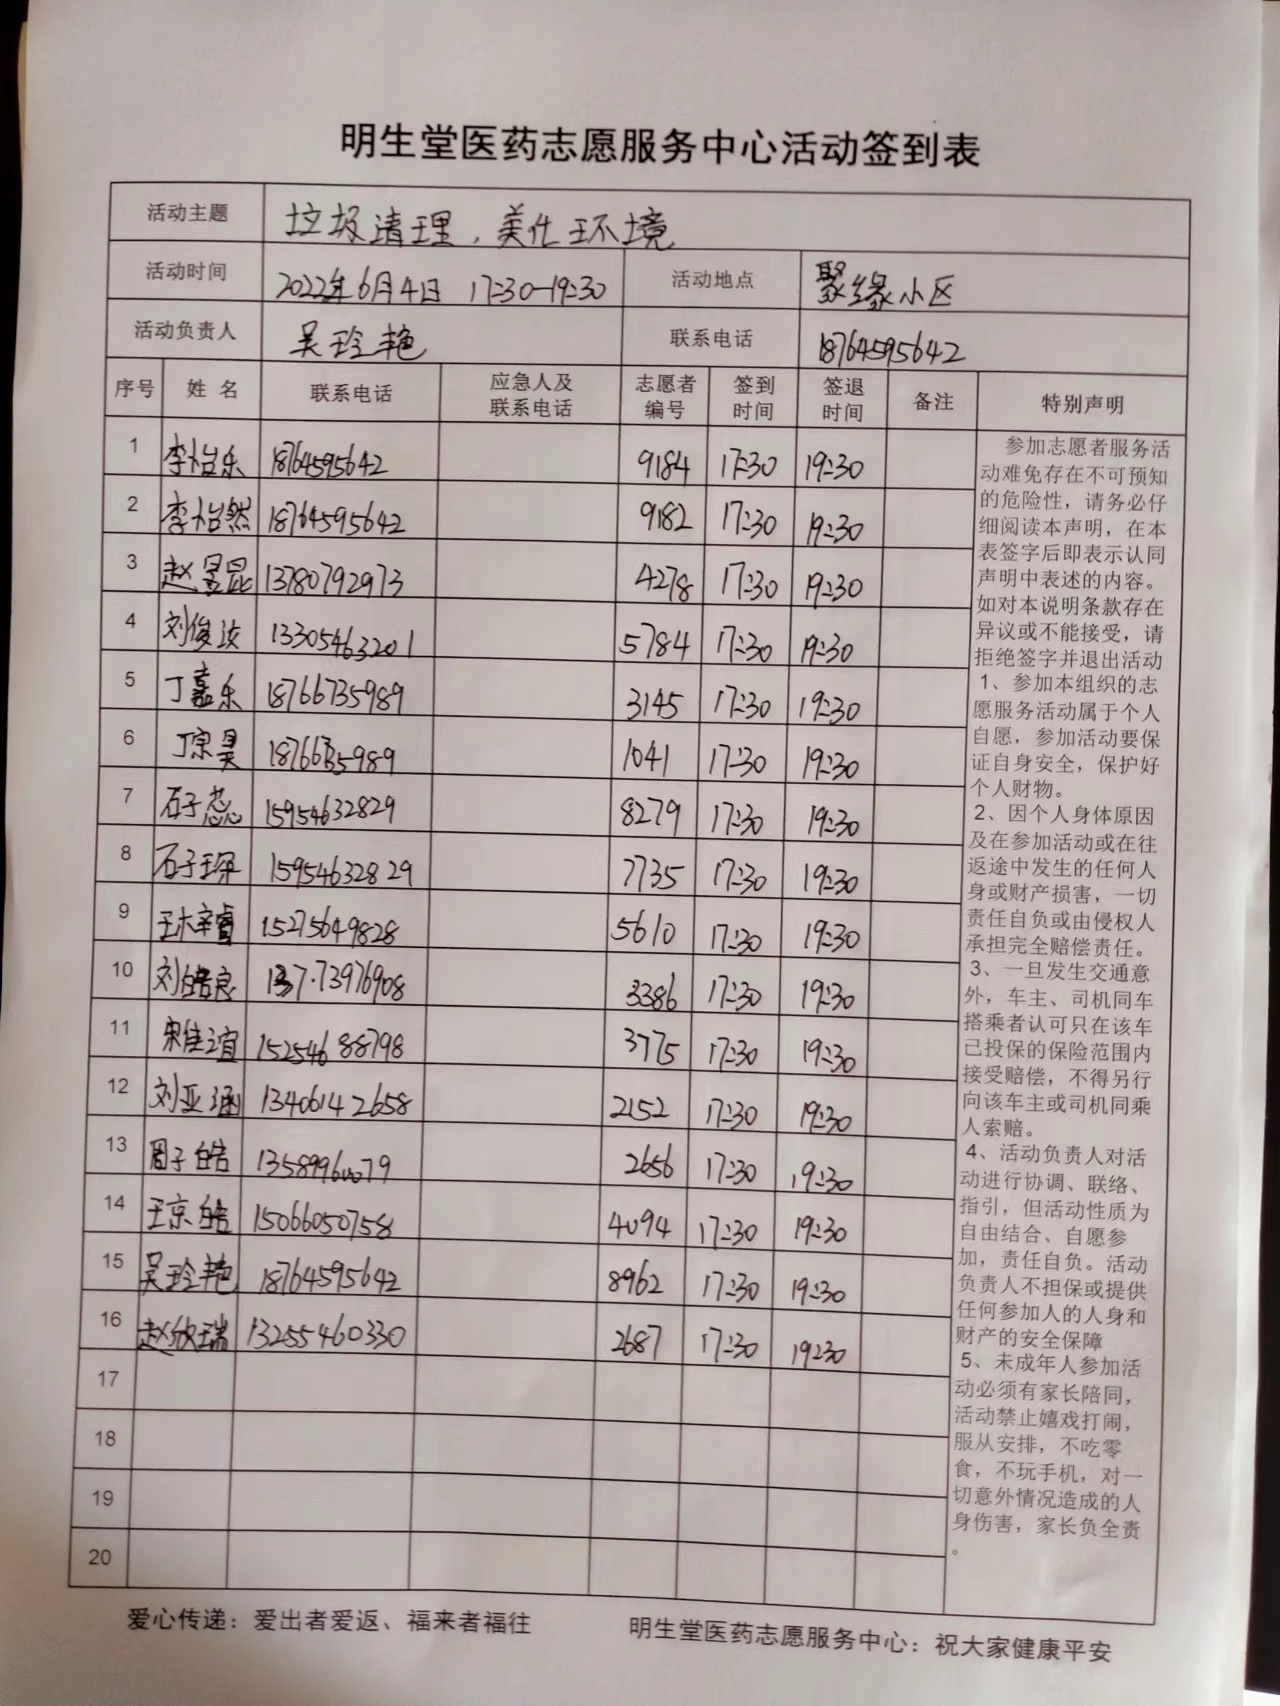 明生堂医药志愿服务中心活动签到表
活动主题 垃圾清理，美化环境
活动时间 2022年6月4日 17:30-19:30 活动地点 聚缘小区
活动负责人 吴玲艳 联系电话 18764595642
序号 姓名 联系电话 应急人及联系电话 志愿者编号 签到时间 签退时间 备注 特别声明
1 李怡乐 18764595642 9184 17:30 19:30
2 李怡然 18764595642 9182 17:30 19:30
3 赵昱昆 13780792973 4278 17:30 19:30
4 刘俊汝 13305463201 5784 17:30 19:30
5 丁嘉乐 18766735989 3145 17:30 19:30
6 丁宗昊 1041 17:30 19:30
7 石子蕊 15954632829 8279 17:30 19:30
8 石子琛 15954632829 7735 17:30 19:30
9 王梓睿 15275649828 5610 17:30 19:30
10 刘皓良 3386 17:30 19:30
11 宋佳谊 15254688798 3775 17:30 19:30
12 刘亚涵 13406142658 2152 17:30 19:30
13 周子皓 13589960079 2656 17:30 19:30
14 王京皓 15066050758 4094 17:30 19:30
15 吴玲艳 18764595642 8962 17:30 19:30
16 赵欣瑞 13255460330 2687 17:30 19:30
17
18
19
20
参加志愿者服务活
动难免存在不可预知
的危险性，请务必仔
细阅读本声明，在本
表签字后即表示认同
声明中表述的内容。
如对本说明条款存在
异议或不能接受，请
拒绝签字并退出活动
1、参加本组织的志
愿服务活动属于个人
自愿，参加活动要保
证自身安全，保护好
个人财物。
2、因个人身体原因
及在参加活动或在往
返途中发生的任何人
身或财产损害，一切
责任自负或由侵权人
承担完全赔偿责任。
3、一旦发生交通意
外，车主、司机同车
搭乘者认可只在该车
已投保的保险范围内
接受赔偿，不得另行
向该车主或司机同乘
人索赔。
4、活动负责人对活
动进行协调、联络、
指引，但活动性质为
自由结合、自愿参
加，责任自负。活动
负责人不担保或提供
任何参加人的人身和
财产的安全保障
5、未成年人参加活
动必须有家长陪同，
活动禁止嬉戏打闹，
服从安排，不吃零
食，不玩手机，对一
切意外情况造成的人
身伤害，家长负全责
。
爱心传递：爱出者爱返、福来者福往 明生堂医药志愿服务中心：祝大家健康平安